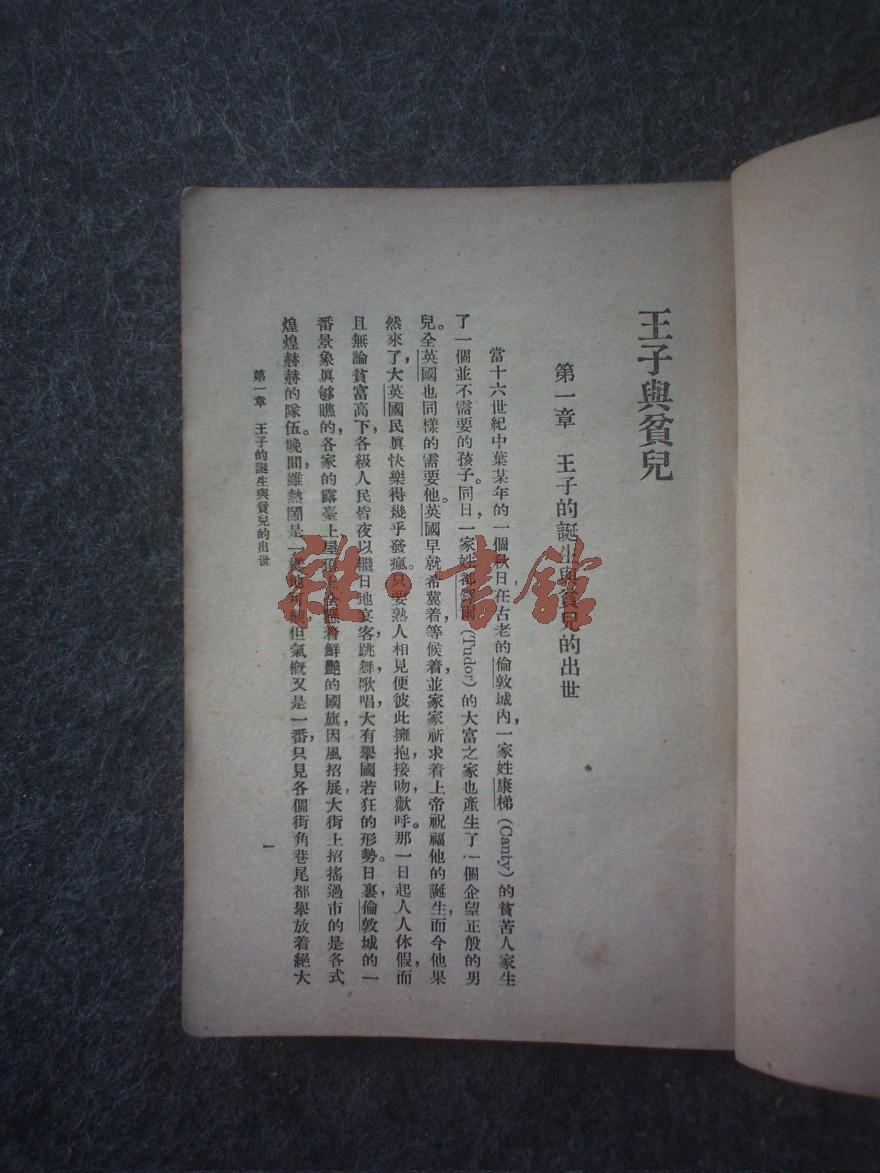 王子與貧兒
第一章　王子的誕生與貧兒的出世
當十六世紀中葉某年的一個秋日在古老的倫敦城內，一家姓康梯（Canty）的貧苦人家生
了一個並不需要的孩子。同日，一家姓都鐸爾（Tudor）的大富之家也產生了一個企望正般的男
兒。全英國也同樣的需要他。英國早就希冀着等候着並家家祈求着上帝祝福他的誕生，而今他果
然來了，大英國民眞快樂得幾乎發瘋。只要熟人相見便彼此擁抱接吻，歡呼。那一日起人人休假，而
且無論貧富高下，各級人民皆夜以繼日地宴客，跳舞，歌唱，大有舉國若狂的形勢。日裏，倫敦城的一
番景象眞够瞧的，各家的露臺上屋頂上全懸着鮮艷的國旗，因風招展，大街上招搖過市的是各式
煌煌赫赫的隊伍。晚間，雖熱鬧是一，但氣概又是一番，只見各個街角巷尾都舉放着絕大
第一章　王子的誕生與貧兒的出世
一
雜·書館